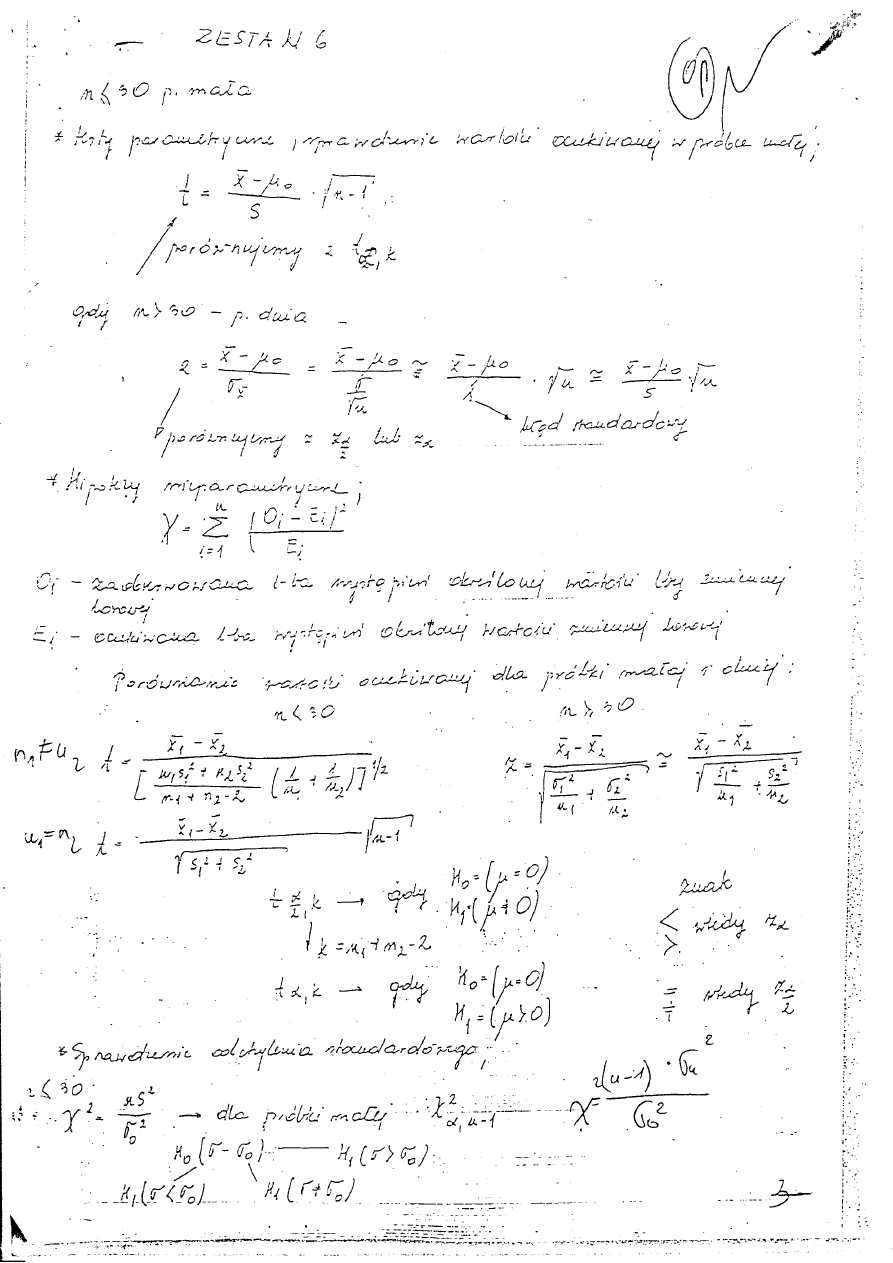 ZESTAW 6
n ≤ 30 p. mała
* testy parametryczne, sprawdzenie wartości oczekiwanej w próbce małej;
t = (x̄ - μ₀)/S · √(n-1)
porównujemy z t α/2, k
gdy n > 30 - p. duża
z = (x̄ - μ₀)/σx̄ = (x̄ - μ₀)/(σ/√n) ≅ (x̄ - μ₀)/s · √n ≅ (x̄ - μ₀)/s · √n
błąd standardowy
porównujemy z z α/2 lub z α
* Hipotezy nieparametryczne;
χ = Σ i=1 n (Oi - Ei)²/Ei
Oi - zaobserwowana l-ba wystąpień określonej wartości zmiennej
losowej
Ei - oczekiwana l-ba wystąpień określonej wartości zmiennej losowej
Porównanie wartości oczekiwanej dla próbki małej i dużej:
n < 30 n ≥ 30
n₁ ≠ n₂ t = (x̄₁ - x̄₂)/[(n₁s₁² + n₂s₂²)/(n₁ + n₂ - 2) (1/n₁ + 1/n₂)]^1/2 z = (x̄₁ - x̄₂)/√(σ₁²/n₁ + σ₂²/n₂) ≅ (x̄₁ - x̄₂)/√(s₁²/n₁ + s₂²/n₂)
n₁ = n₂ t = (x̄₁ - x̄₂)/√(s₁² + s₂²) √(n-1)
t α/2, k → gdy H₀ = (μ = 0)
H₁ = (μ ≠ 0)
k = n₁ + n₂ - 2
t α, k → gdy H₀ = (μ = 0)
H₁ = (μ > 0)
znak
< wtedy z α
>
= wtedy z α/2
≠
* Sprawdzenie odchylenia standardowego;
≤ 30
χ² = nS²/σ₀² → dla próbki małej χ² α, n-1
H₀ (σ - σ₀) — H₁ (σ > σ₀)
H₁ (σ < σ₀) H₁ (σ ≠ σ₀)
3